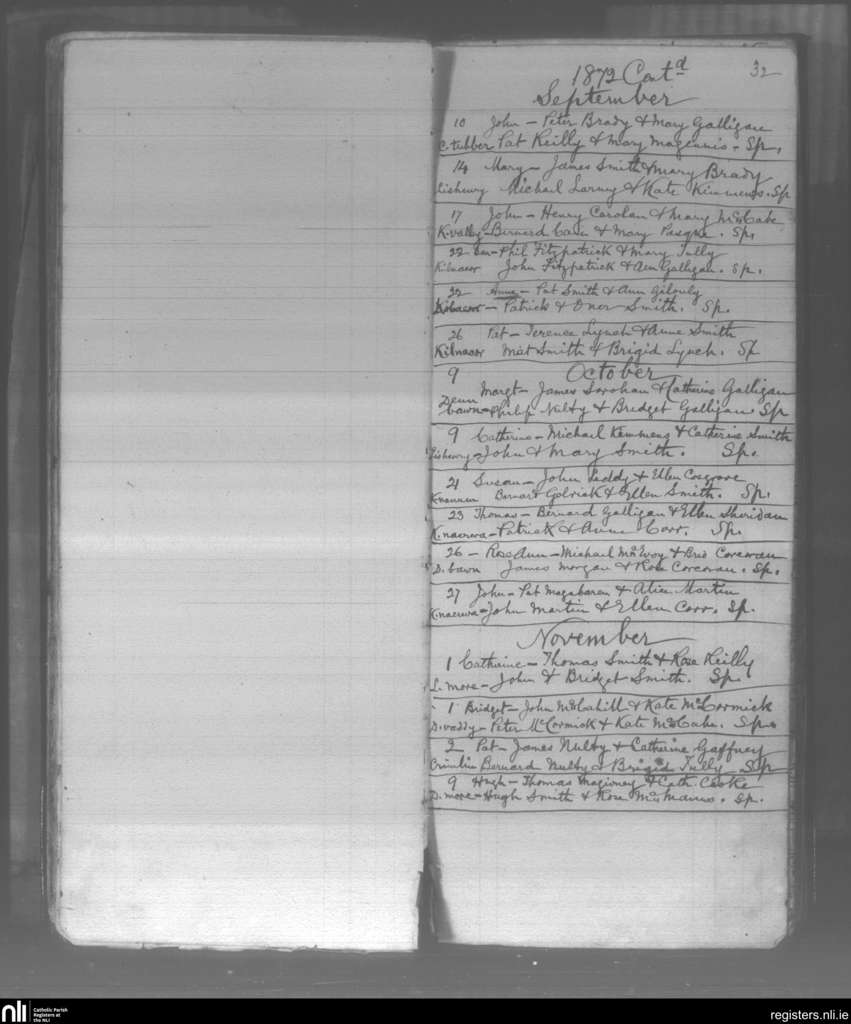 32
1872 Contd
September
10 John - Peter Brady & Mary Galligan
C.tubber Pat Reilly & Mary Magennis - Sp.
14 Mary - James Smith & Mary Brady
Lisheury Michael & Kate Kimmens. Sp
17 John - Henry Carolan & Mary McCabe
K.vally - Bernard & Mary. Sp.
22 - Phil Fitzpatrick & Mary Tully
Kilnacor John Fitzpatrick & Ann Galligan. Sp.
22 Anne - Pat Smith & Ann
Kilnacor - Patrick & Smith. Sp.
26 Pat - Terence Lynch & Anne Smith
Kilnacor Mat Smith & Brigid Lynch. Sp
October
9 Margt - James & Catherine Galligan
Denn bawn - Philip Nulty & Bridget Galligan. Sp
9 Catherine - Michael Kemmens & Catherine Smith
Lisheury - John & Mary Smith. Sp.
21 Susan - John Leddy & Ellen Cosgrove
& Ellen Smith. Sp.
23 Thomas - Bernard Galligan & Ellen Sheridan
K.nacrwa - Patrick & Anne Corr. Sp.
26 - Rose Ann - Michael McEvoy & Brid Corcoran
D. bawn James Morgan & Rose Corcoran. Sp.
27 John - Pat & Alice Martin
K.nacrwa - John Martin & Ellen Corr. Sp.
November
1 Catherine - Thomas Smith & Rose Reilly
L. more - John & Bridget Smith. Sp.
1 Bridget - John McCahill & Kate McCormick
D.vaddy - Peter McCormick & Kate McCabe. Sp.
2 Pat - James Nulty & Catherine Gaffney
Crimlin Bernard Nulty & Brigid Tully Sp
9 Hugh - Thomas & Cath. Cooke
D. more - Hugh Smith & Rose McManus. Sp.
nli
Catholic Parish
Registers at
the NLI
registers.nli.ie